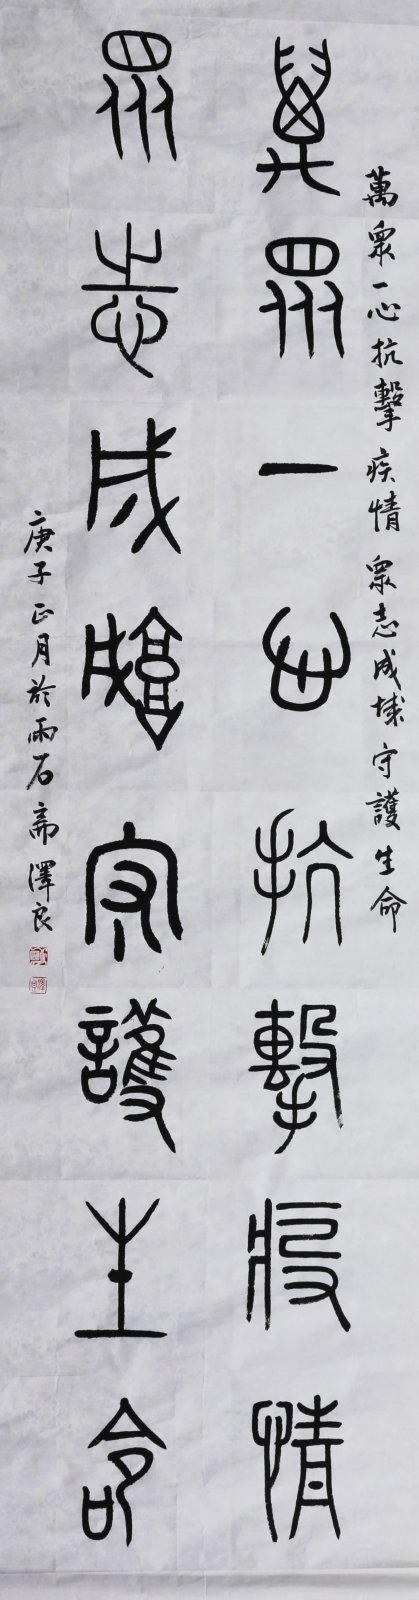 萬衆一心抗擊疾情 衆志成城守護生命
萬衆一心抗擊疫情
衆志成城守護生命
庚子正月於雨石齋澤良